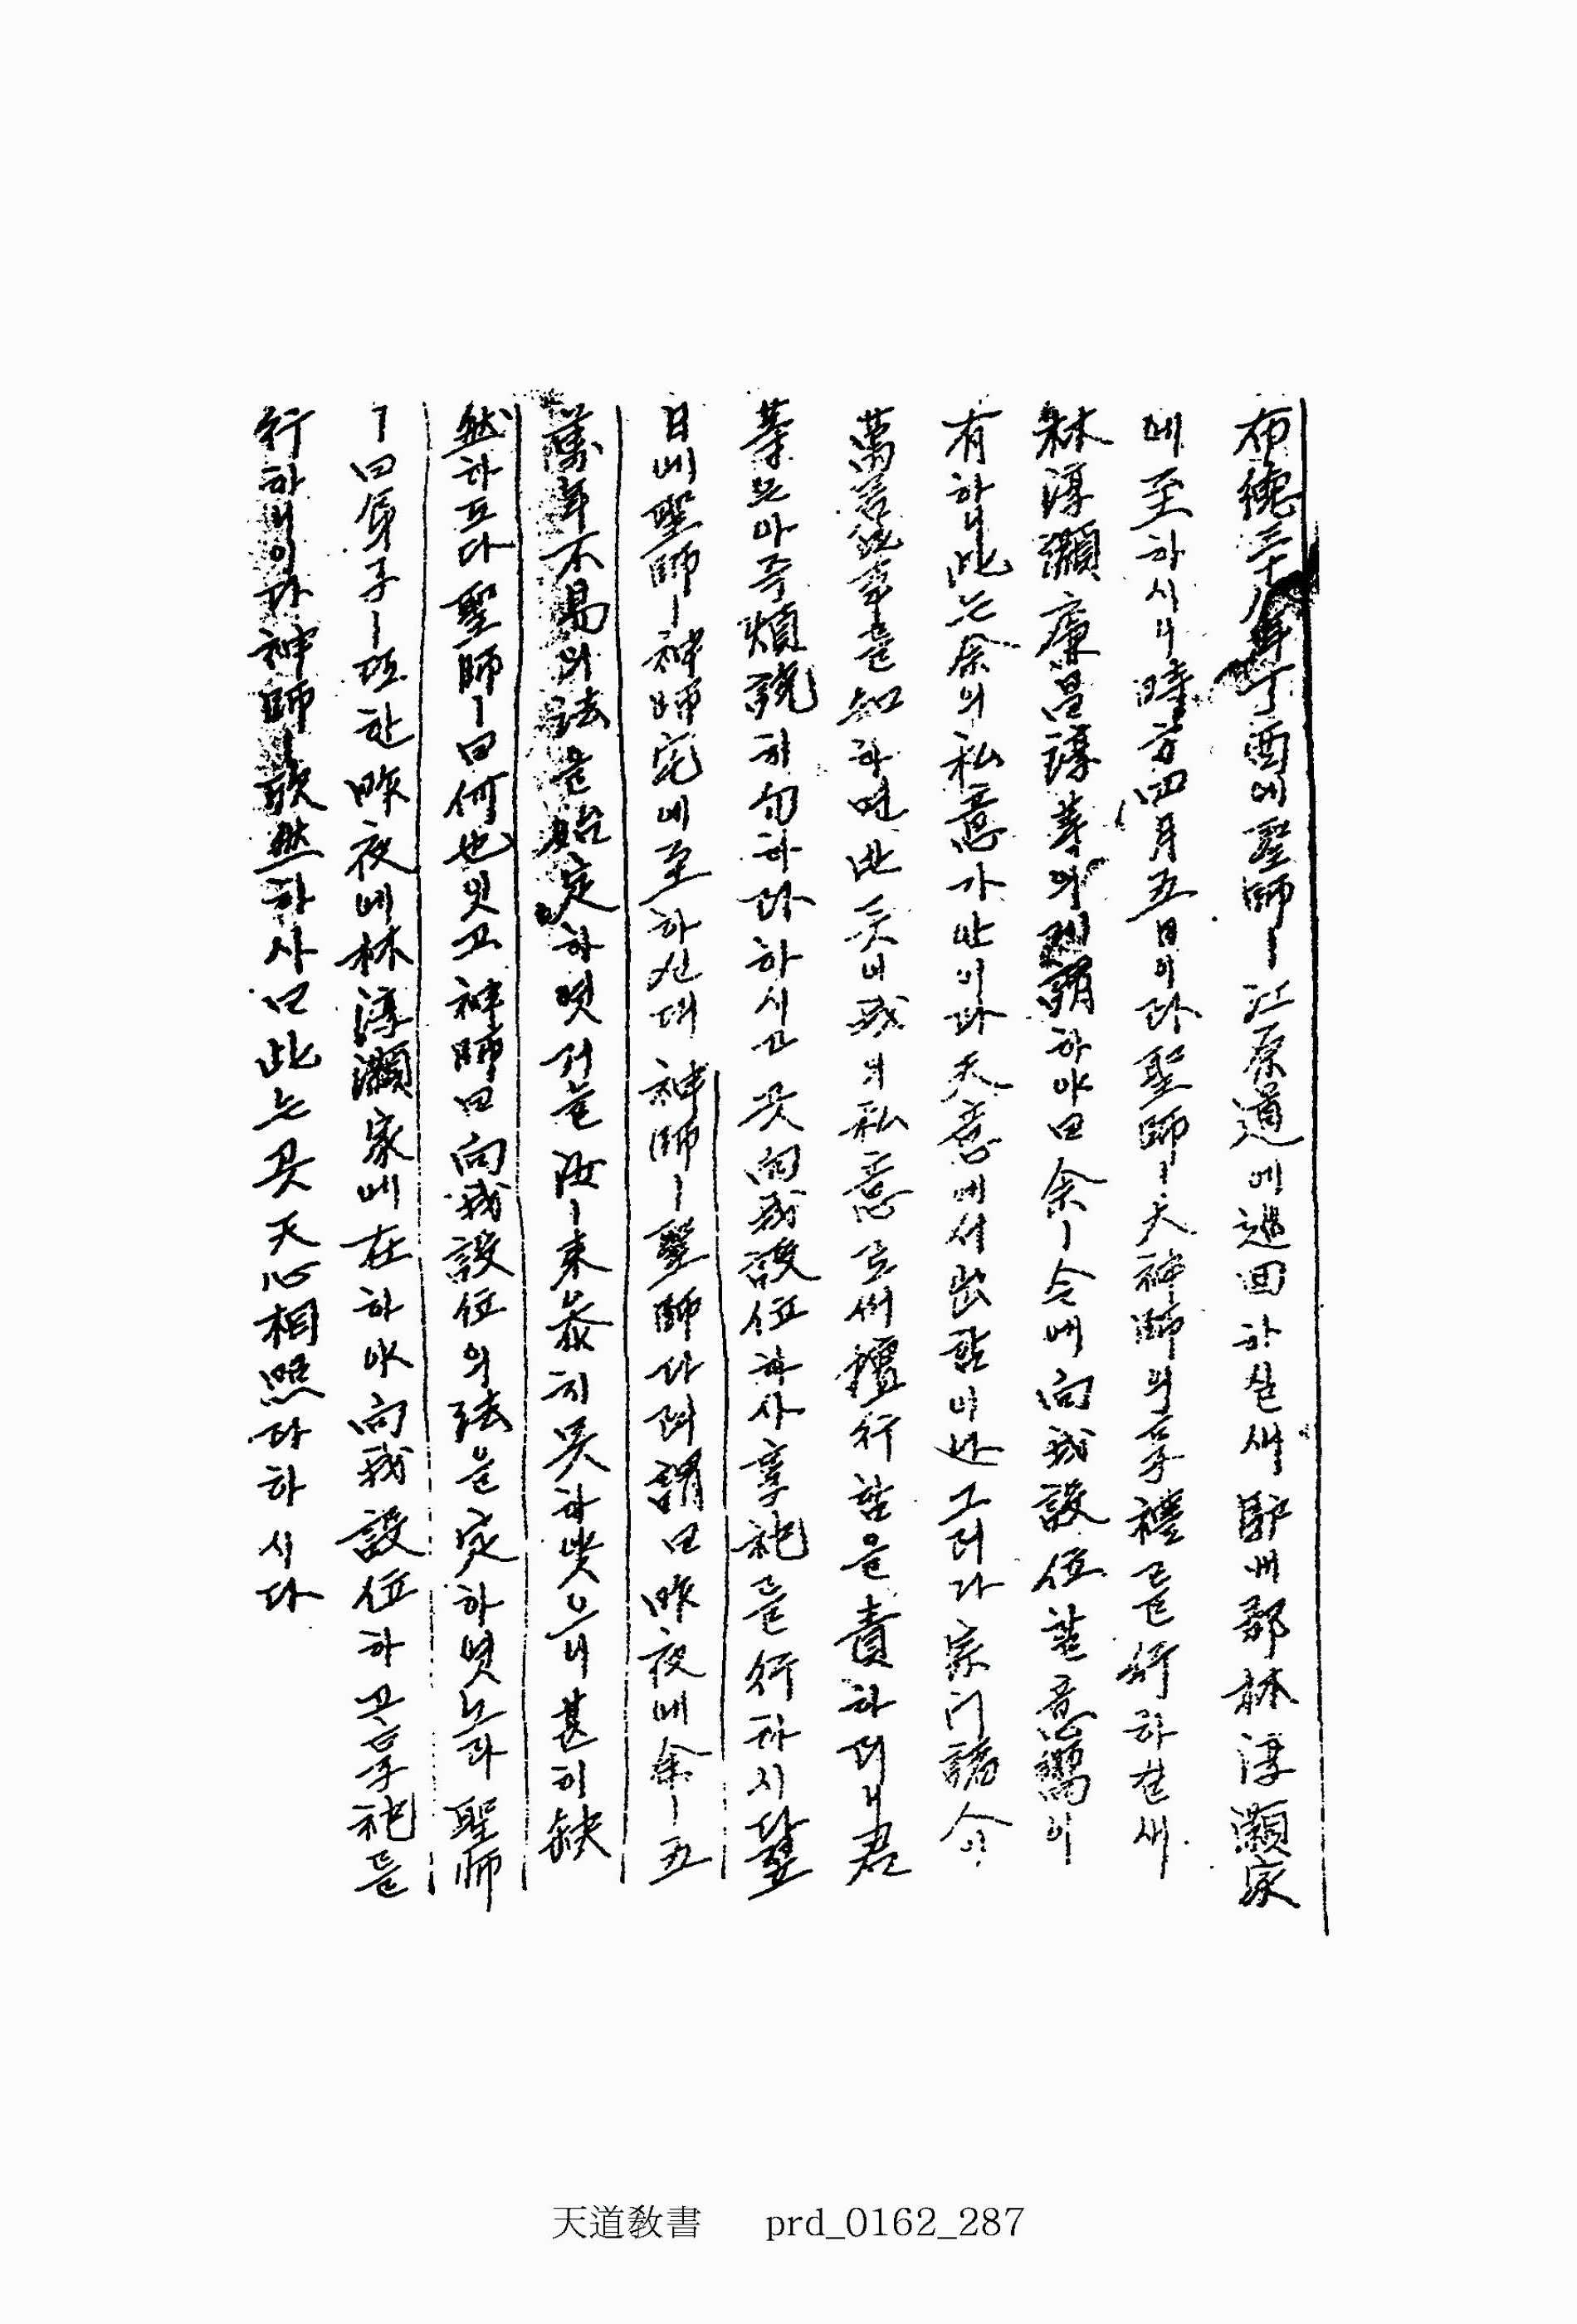 布德三十八年丁酉에聖師ㅣ江原道에巡回하실새驪州郡林淳灝家
에至하시니時는四月五日이라聖師ㅣ大神師의享禮를行하실새
林淳灝廉昌淳等의게謂하야曰余ㅣ今에向我設位할意嚮이
有하니此는余의私意가안이라天意에서出함이나그러나家門諸人이
萬若此事를知하면반듯이我의私意로써擅行함을責하려니君
等은아주煩說치勿하라하시고곳向我設位하사享祀를行하시다翌
日에聖師ㅣ神師宅에至하신대神師ㅣ聖師다려謂曰昨夜에余ㅣ五
萬年不易의法을始定하엿거늘汝ㅣ來參치못하얏으니甚히缺
然하도다聖師ㅣ曰何也잇고神師曰向我設位의法을定하엿노라聖師
ㅣ曰弟子ㅣ또한昨夜에林淳灝家에在하야向我設位하고享祀를
行하니이다神師ㅣ欣然하사曰此는곳天心相照라하시다
天道敎書 prd_0162_287